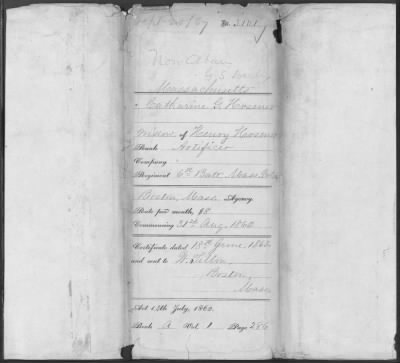 Massachusetts
Catharine G. Hosmer
widow of Henry Hosmer
Rank Artificer
Company
Regiment 6th Batt Mass Vols
Boston, Mass Agency.
Rate per month, $8
Commencing 31st Aug. 1862
Certificate dated 18th June, 1863
and sent to W. Tilton
Boston,
Mass
Act 14th July, 1862.
Book A Vol. 1 Page 286